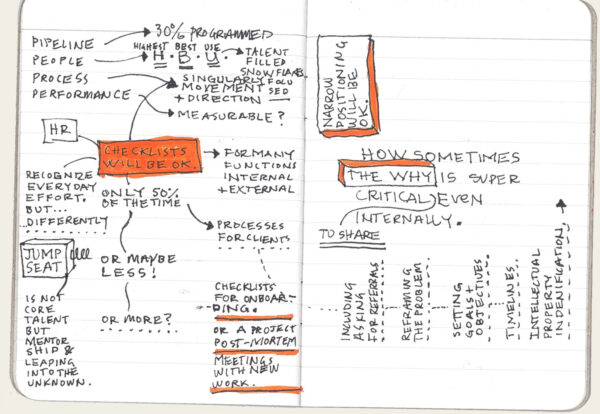 PIPELINE
PEOPLE
PROCESS
PERFORMANCE
30% PROGRAMMED
HIGHEST BEST USE
H. B. U.
TALENT
FILLED
SNOWFLAKE
SINGULARLY FOCU
SED
MOVEMENT
+ DIRECTION
MEASURABLE?
HR
CHECKLISTS
WILL BE OK.
FOR MANY
FUNCTIONS
INTERNAL
+ EXTERNAL
RECOGNIZE
EVERYDAY
EFFORT.
BUT...
DIFFERENTLY
ONLY 50%
OF THE TIME
PROCESSES
FOR CLIENTS
JUMP
SEAT
OR MAYBE
LESS!
IS NOT
CORE
TALENT
BUT
MENTOR
SHIP &
LEAPING
INTO THE
UNKNOWN.
OR MORE?
CHECKLISTS
FOR ONBOAR-
DING.
OR A PROJECT
POST-MORTEM
MEETINGS
WITH NEW
WORK.
NARROW
POSITIONING
WILL BE
OK.
HOW SOMETIMES
THE WHY IS SUPER
CRITICAL, EVEN
INTERNALLY.
TO SHARE
INCLUDING
ASKING
FOR REFERRALS
REFRAMING
THE PROBLEM
SETTING
GOALS +
OBJECTIVES.
TIMELINES.
INTELLECTUAL
PROPERTY
INDENIFICATION.